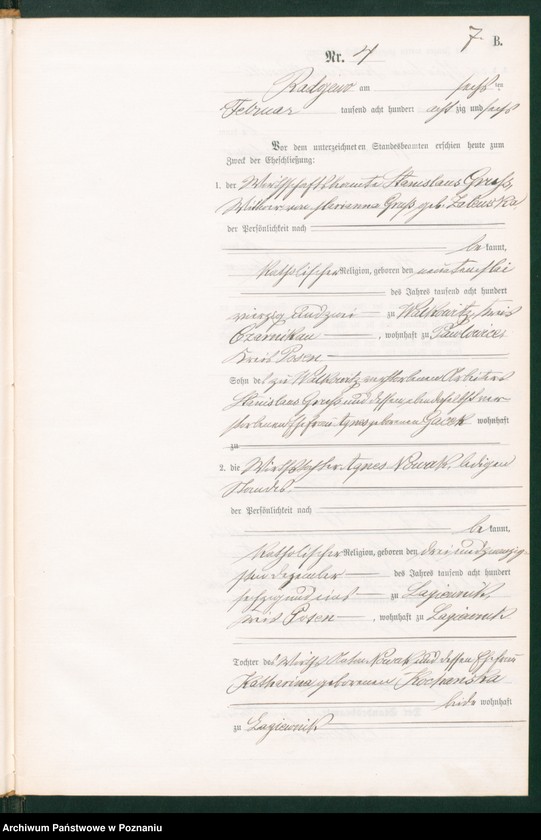 7.
B.
Nr. 4
Radojewo am sechs ten
Februar tausend acht hundert acht zig und sechs
Vor dem unterzeichneten Standesbeamten erschien heute zum
Zweck der Eheschließung:
1. der Wirthschaftsbeamte Stanislaus
Wittwer von Marianna geb.
der Persönlichkeit nach
be kannt,
katholischer Religion, geboren den neunten Mai
des Jahres tausend acht hundert
vierzig und zwei zu Walkowitz, Kreis
Czarnikau, wohnhaft zu Pawlowice
Kreis Posen
Sohn des zu Walkowitz verstorbenen Arbeiters
Stanislaus und dessen ebendaselbst ver-
storbenen Ehefrau Agnes geborenen Gacek wohnhaft
zu
2. die Wirthstochter Agnes Nowak, ledigen
Standes,
der Persönlichkeit nach
be kannt,
katholischer Religion, geboren den drei und zwanzig
sten Dezember des Jahres tausend acht hundert
sechzig und eins zu Lagiewnik,
Kreis Posen, wohnhaft zu Lagiewnik
Tochter des Wirths Nowak und dessen Ehefrau
Katharina geborenen
beide wohnhaft
zu Lagiewnik
Archiwum Państwowe w Poznaniu